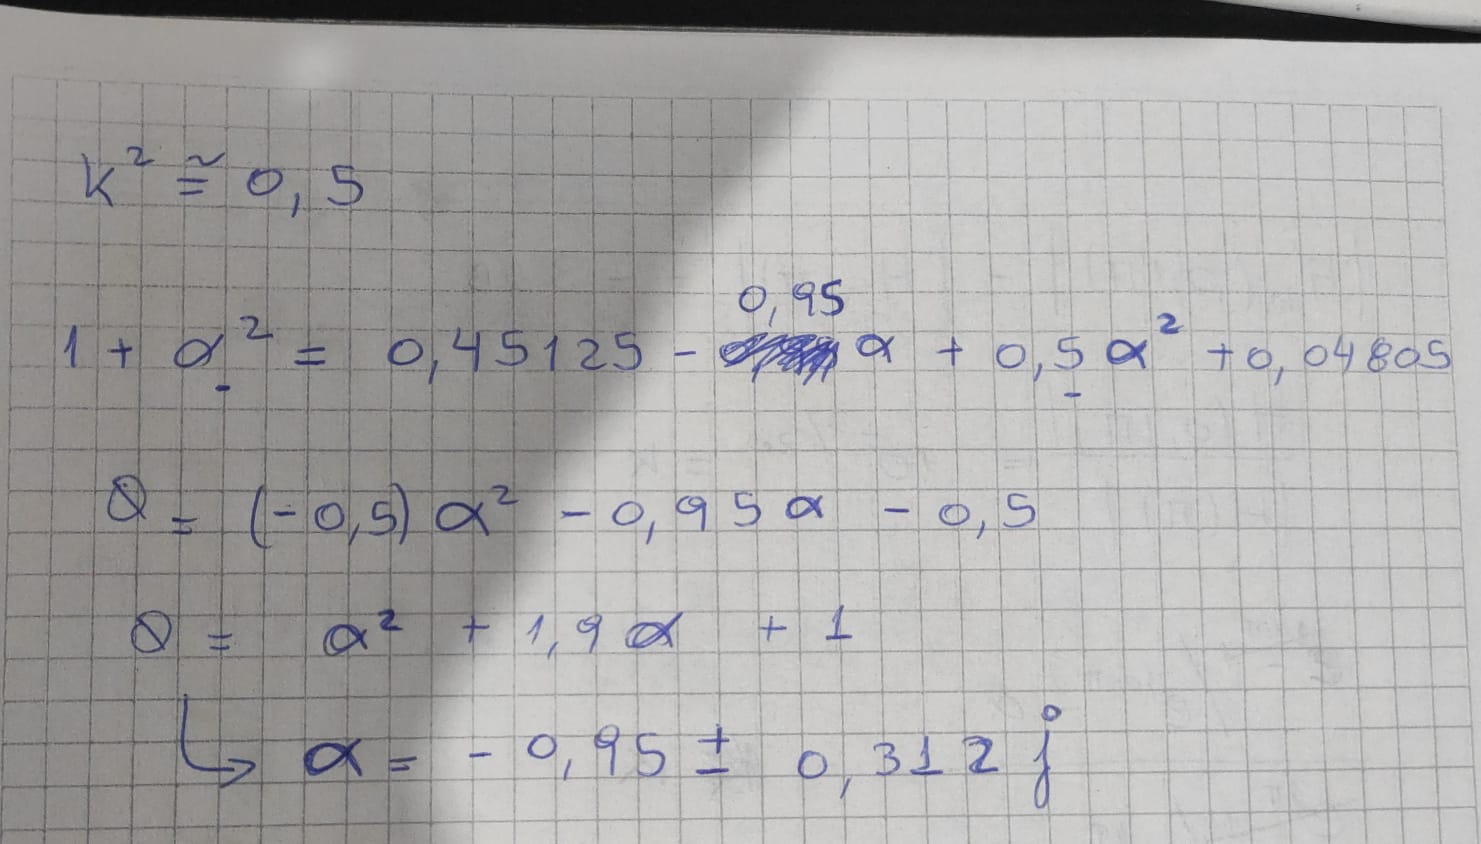 k² ≅ 0,5
1 + α² = 0,45125 - 0,95 α + 0,5 α² + 0,04805
0 = (-0,5) α² - 0,95 α - 0,5
0 = α² + 1,9 α + 1
↳ α = - 0,95 ± 0,312 j